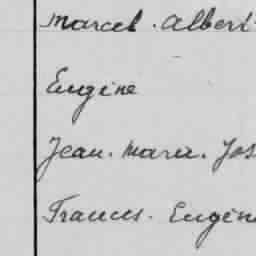 Marcel. Albert
Eugène
Jean. Marie. Jos
Francis. Eugèn